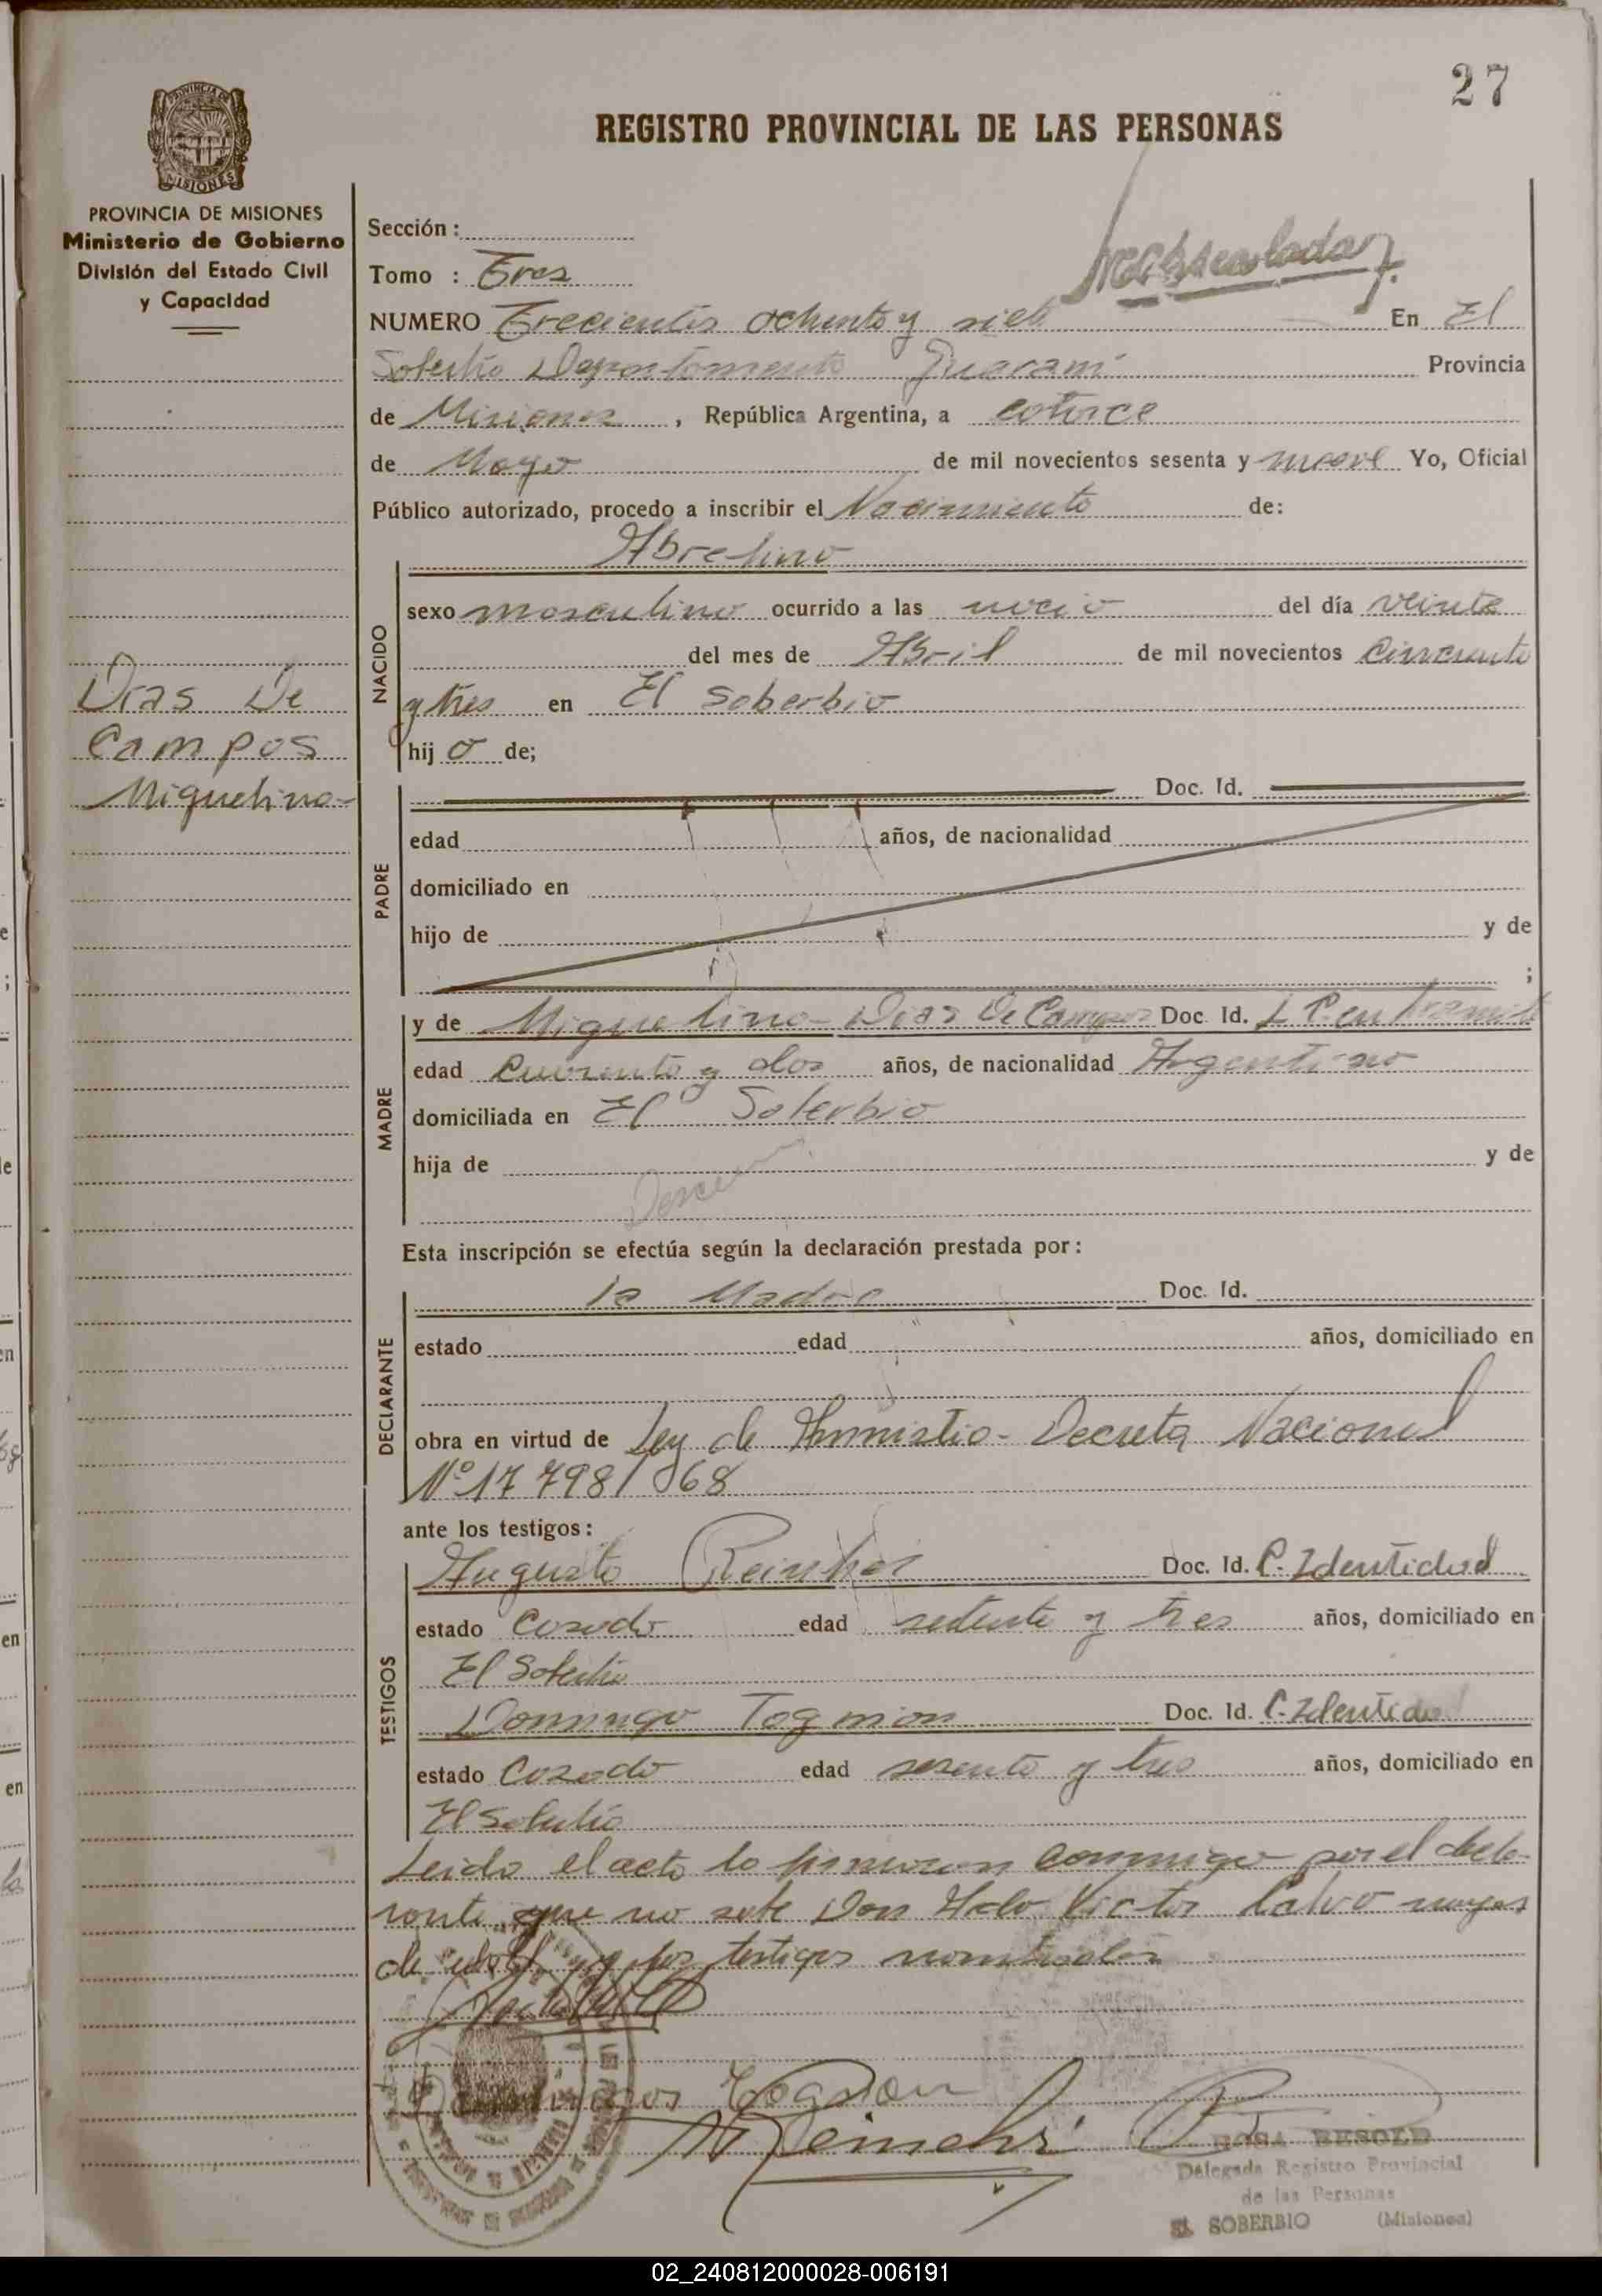 27
REGISTRO PROVINCIAL DE LAS PERSONAS
PROVINCIA DE MISIONES
MISIONES
PROVINCIA DE MISIONES
Ministerio de Gobierno
División del Estado Civil
y Capacidad
Sección :
Tomo : Tres
NUMERO Trecientos ochenta y siete En El
Soberbio Departamento Guaraní Provincia
de Misiones, República Argentina, a catorce
de Mayo de mil novecientos sesenta y nueve Yo, Oficial
Público autorizado, procedo a inscribir el Nacimiento de:
NACIDO
sexo masculino ocurrido a las del día veinte
del mes de Abril de mil novecientos cincuenta
y tres en El Soberbio
hij o de;
Dias De
Campos
Miguelina-
PADRE
Doc. Id.
edad años, de nacionalidad
domiciliado en
hijo de y de
;
MADRE
y de Miguelina- Dias De Campos Doc. Id. en tramite
edad cuarenta y dos años, de nacionalidad Argentina
domiciliada en El Soberbio
hija de y de
Esta inscripción se efectúa según la declaración prestada por:
DECLARANTE
la Madre Doc. Id.
estado edad años, domiciliado en
obra en virtud de Ley de Amnistia- Decreto Nacional
Nº 17798/968
ante los testigos:
TESTIGOS
Augusto Doc. Id. C. Identidad
estado Casado edad setenta y tres años, domiciliado en
El Soberbio
Domingo Togmon Doc. Id. C. Identidad
estado Casado edad sesenta y tres años, domiciliado en
El Soberbio
Leida el acta la firmaron conmigo por el decla-
rante que no sabe Don Victor Calvo mayor
de edad y los testigos nombrados
ROSA BESOLD
Delegada Registro Provincial
de las Personas
EL SOBERBIO (Misiones)
02_240812000028-006191